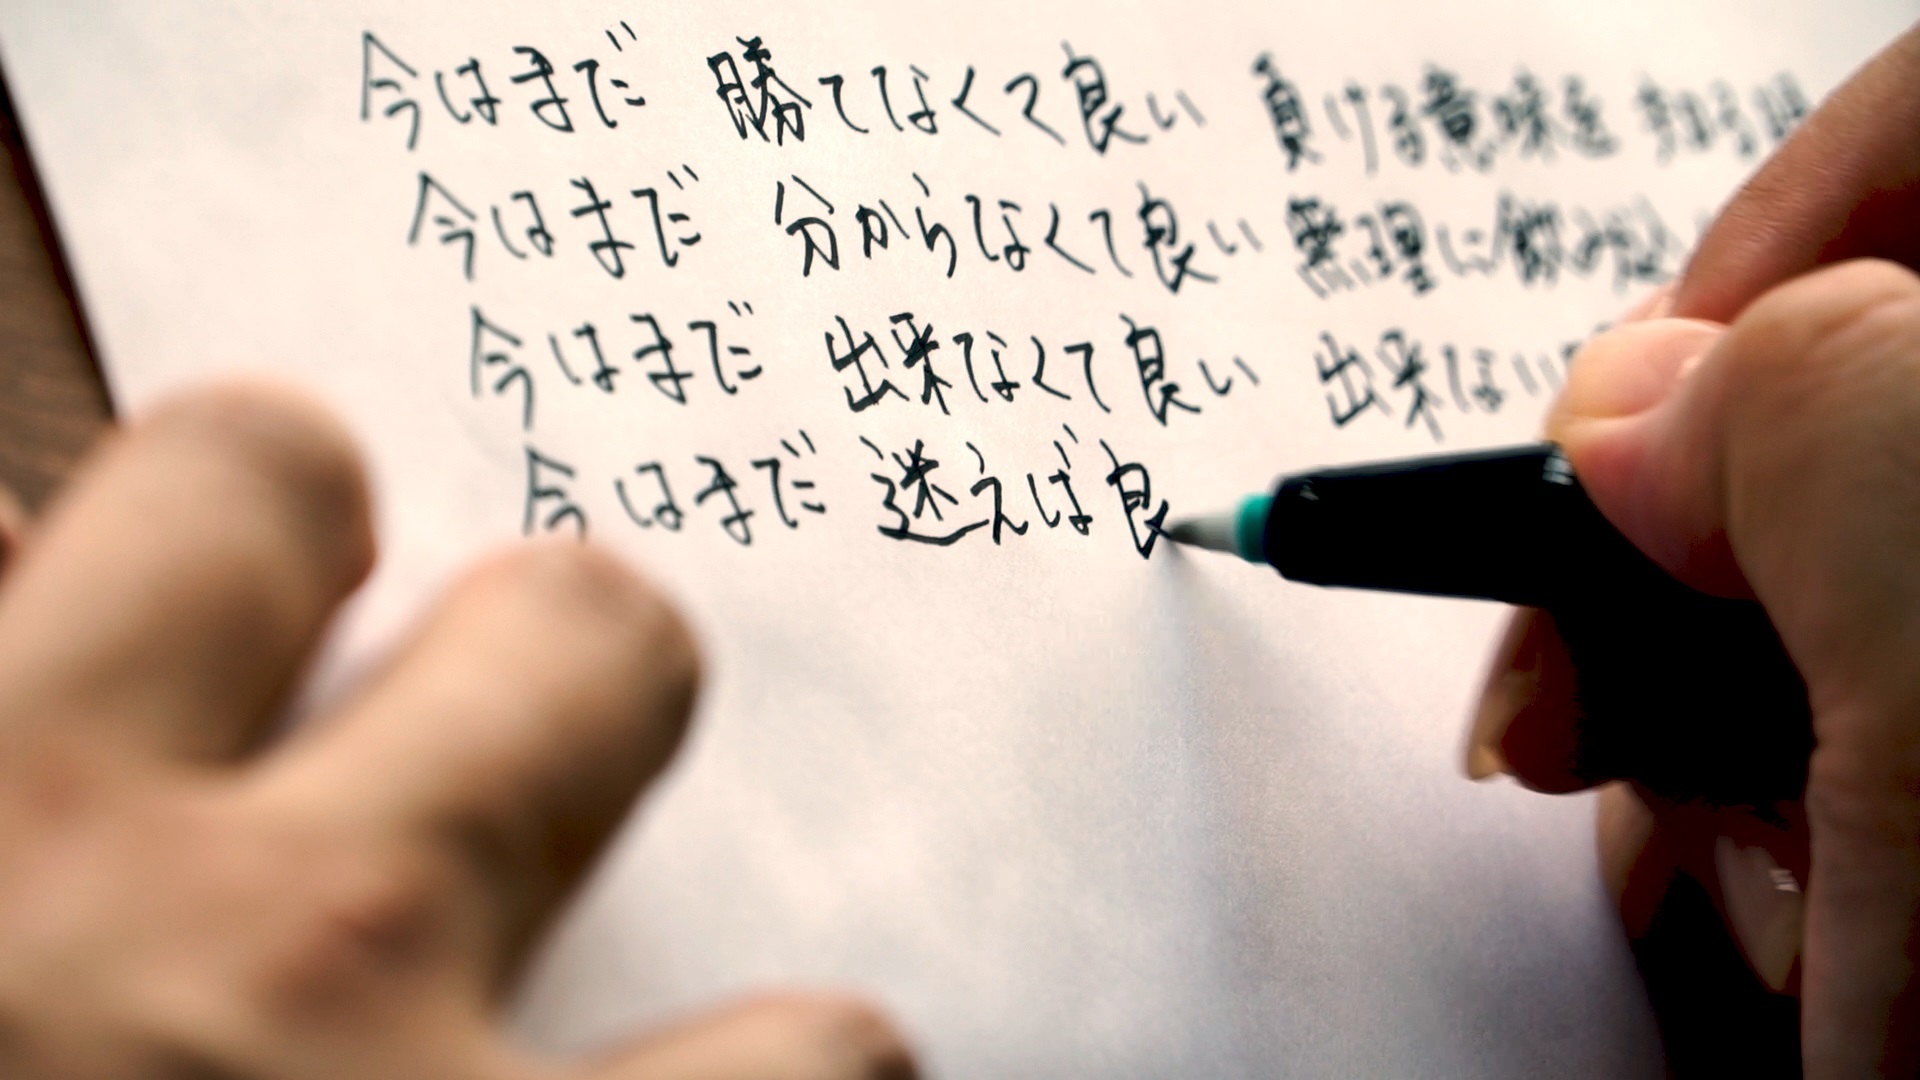 今はまだ 勝てなくて良い 負ける意味を 知る
今はまだ 分からなくて良い 無理に飲み込
今はまだ 出来なくて良い 出来ない
今はまだ 迷えば良